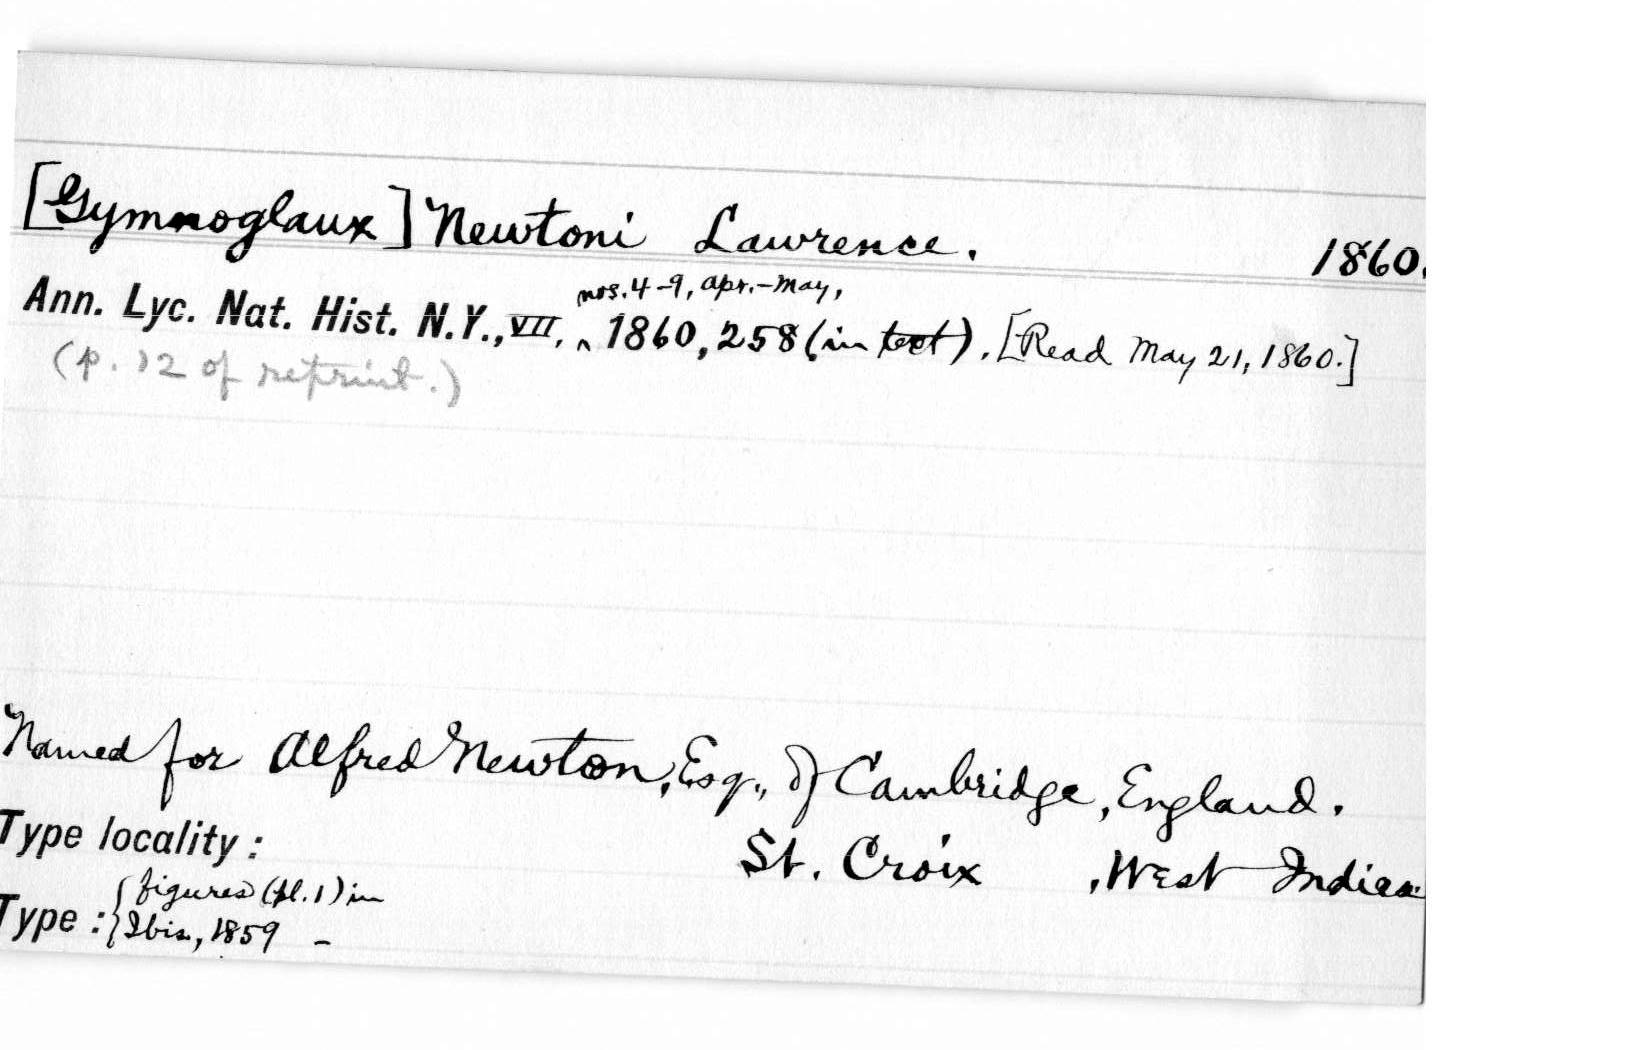 [Gymnoglaux] Newtoni Lawrence. 1860.
nos. 4-9, Apr.-May,
Ann. Lyc. Nat. Hist. N.Y., VII, ^ 1860, 258 (in text). [Read May 21, 1860.]
(p. 12 of reprint.)
Named for Alfred Newton, Esq., of Cambridge, England.
Type locality: St. Croix , West Indies.
figures (pl. 1) in
Type: { Ibis, 1859 -